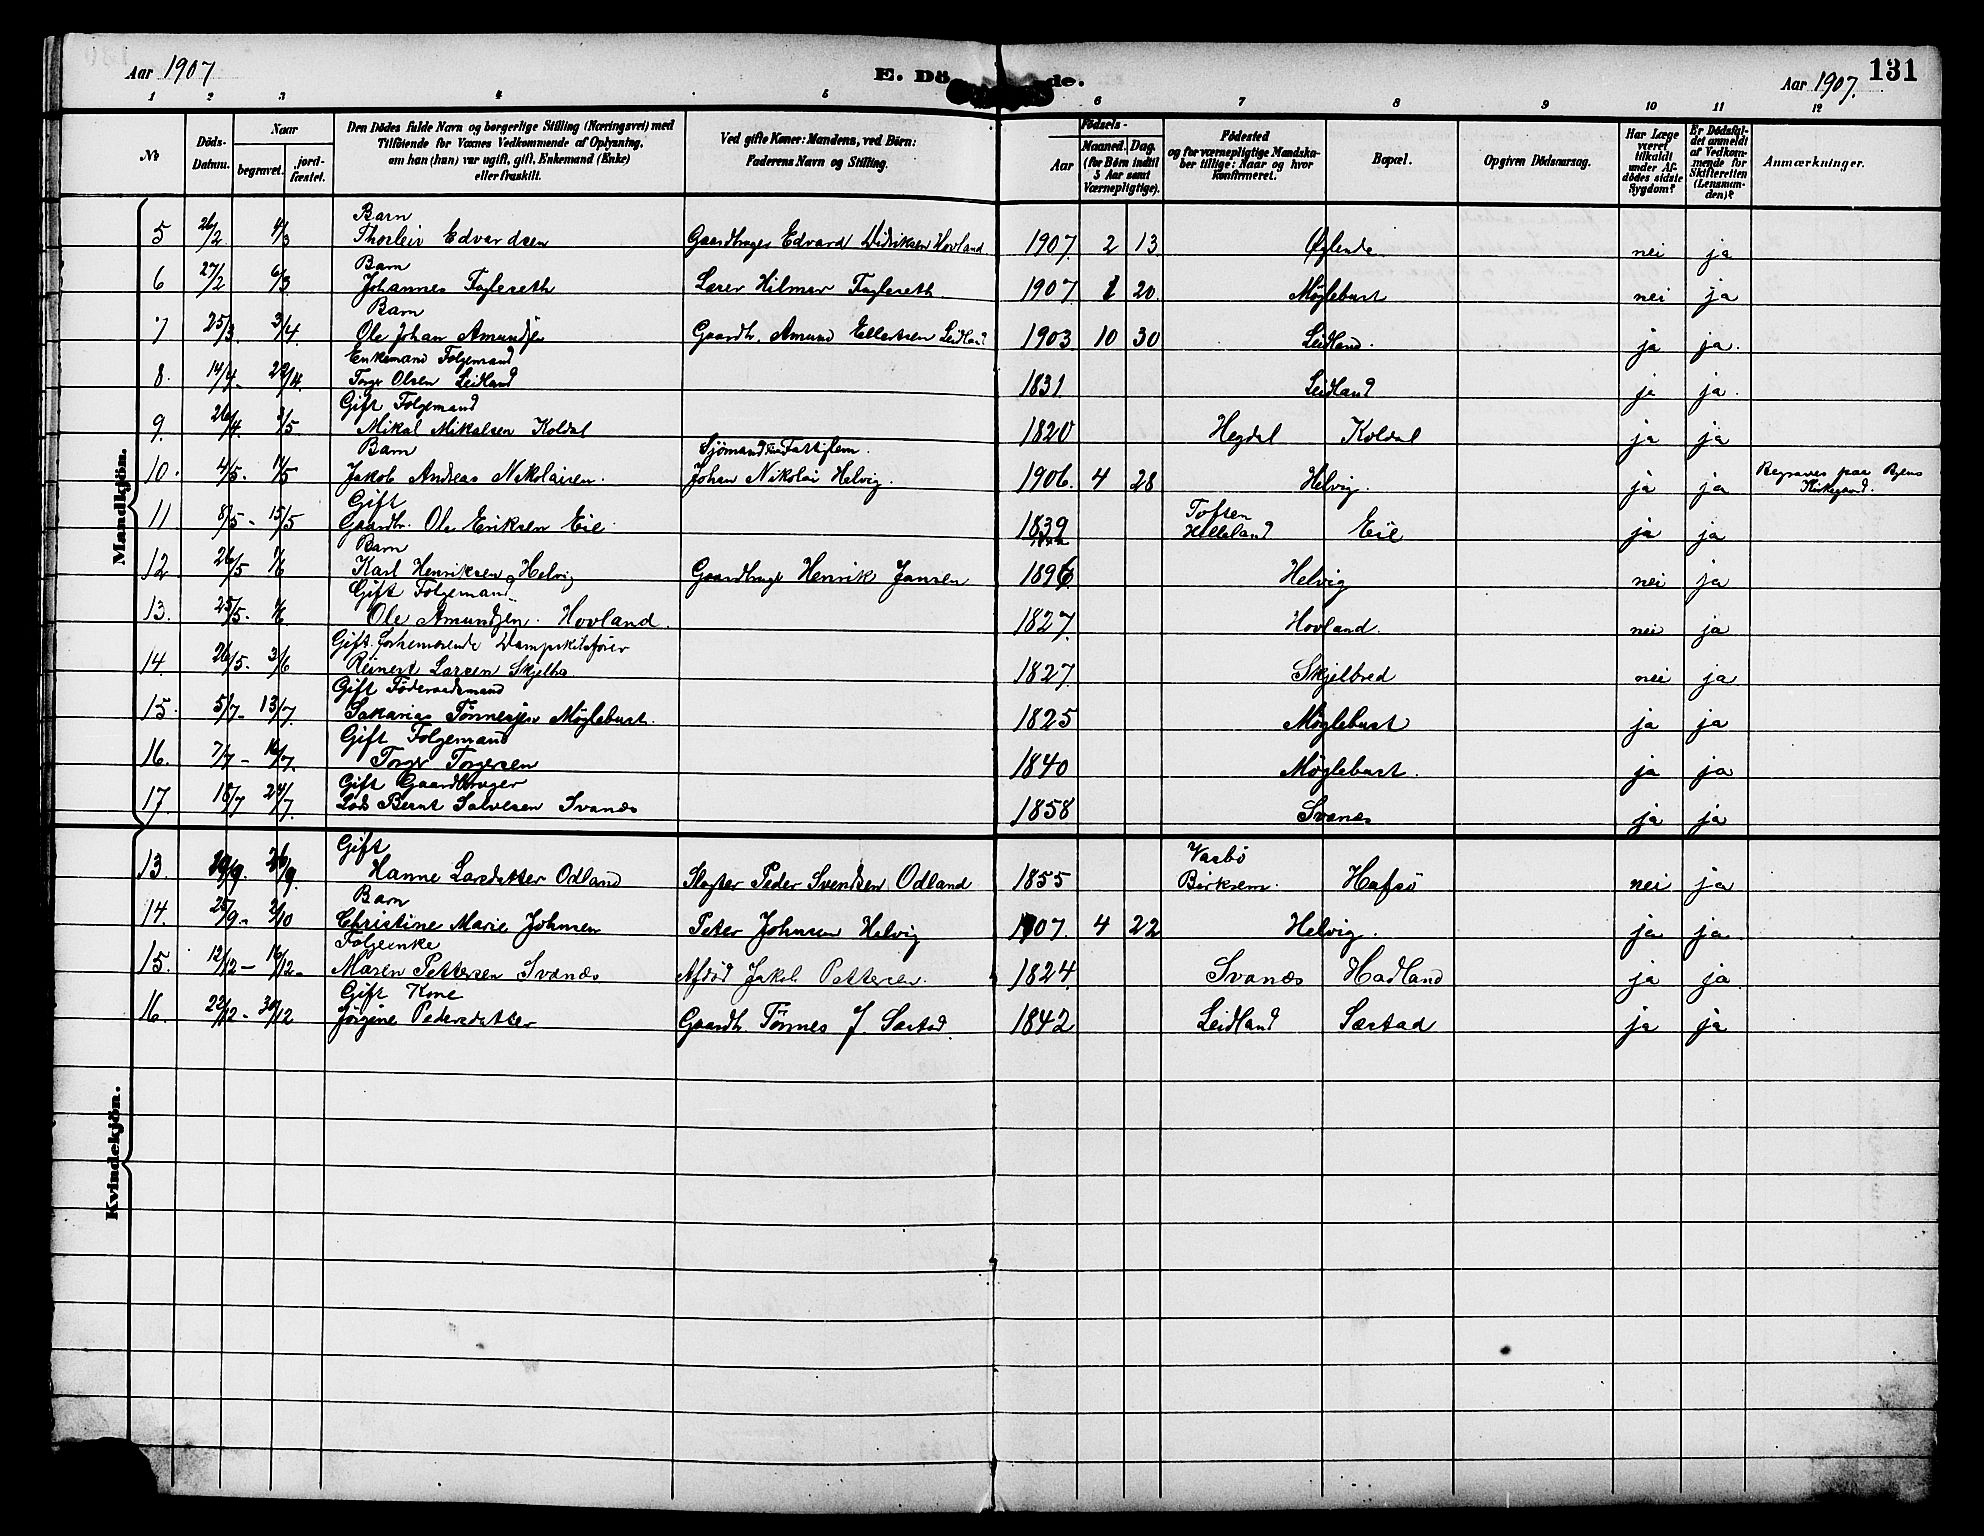 Aar 1907
E. Dö de.
Aar 1907.
131
1 2 3 4 5 6 7 8 9 10 11 12
No
Döds-Datum.
Naar
begravet.
jord-fæstet.
Den Dödes fulde Navn og borgerlige Stilling (Næringsvei) med
Tilföiende for Voxnes Vedkommende af Oplysning,
om han (hun) var ugift, gift, Enkemand (Enke)
eller fraskilt.
Ved gifte Koner: Mandens, ved Börn:
Faderens Navn og Stilling.
Födsels-
Aar
Maaned.
Dag.
(for Börn indtil
5 Aar samt
Værnepligtige).
Födested
og for værnepligtige Mandska-
ber tillige: Naar og hvor
konfirmeret.
Bopæl.
Opgiven Dödsaarsag.
Har Læge
været
tilkaldt
under Af-
dödes sidste
Sygdom?
Er Dödsfal-
det anmeldt
af Vedkom-
mende for
Skifteretten
(Lensman-
den)?
Anmærkninger.
Mandkjön.
Barn
5 26/2 4/3 Thorleiv Edvardsen Gaardbruger Edvard Didriksen Hovland 1907. 2 13. Øglende nei ja
Barn
6 27/2 6/3 Johannes Faglereth Lærer Hilmar Faglereth. 1907. 1 20. Møglebust nei ja
Barn
7 25/3. 3/4. Ole Johan Amundsen Gaardb. Amund Ellertsen Leidland 1903. 10 30 Leidland. ja ja.
Enkemand Folgemand
8. 14/4- 22/4. Torger Olsen Leidland 1831 Leidland ja ja.
Gift Folgemand
9. 26/4. 3/5. Mikal Mikalsen Koldal 1820 Hegdal Koldal ja ja
Barn Sjömand
10. 4/5. 11/5 Jakob Andreas Nikolaisen. Johan Nikolai Helvig. 1906. 4 28 Helvig. ja ja Begraves paa Byens
Kirkegaard.
Gift Tofsen
11 8/5- 15/5 Gaardbr. Ole Eriksen Eie 1839 Helleland Eie ja ja
Barn
12 26/5 1/6 Karl Henriksen Helvig Gaardbruger Henrik Jansen 1896 Helvig nei ja
Gift Folgemand
13. 25/5. 1/6 Ole Amundsen. Hovland. 1827. Hovland. nei ja
Gift. forhenværende Dampskibsfører
14. 26/5. 3/6 Reinert Larsen Skjelbr. 1827. Skjelbred nei ja
Gift Føderaadsmand
15. 5/7- 13/7. Sakarias Tönnesen Møglebust. 1825 Møglebust ja ja
Gift Folgemand
16. 7/7- 16/7. Torger Torgersen 1840 Møglebust. ja ja
Gift Gaardbruger
17. 18/7 24/7. Lods Bernt Salvesen Svanes 1858 Svanes ja ja
Kvindekjön.
Gift Vasbö
13. 19/9. 26/9. Hanne Larsdatter Odland Slagter Peder Svendsen Odland 1855 Birkrem. Hafsö nei ja
Barn
14. 25/9- 2/10 Christine Marie Johnsen Peter Johnsen Helvig 1907. 4 22 Helvig. ja ja.
Folgeenke
15. 12/12- 16/12. Maren Pettersen Svanæs Afdød Jakob Pettersen. 1824. Svanæs Hadland ja ja.
Gift Kone
16. 22/12- 30/12 Jørgine Pedersdatter Gaardb. Tönnes J. Sæstad. 1842 Leidland Sæstad ja ja